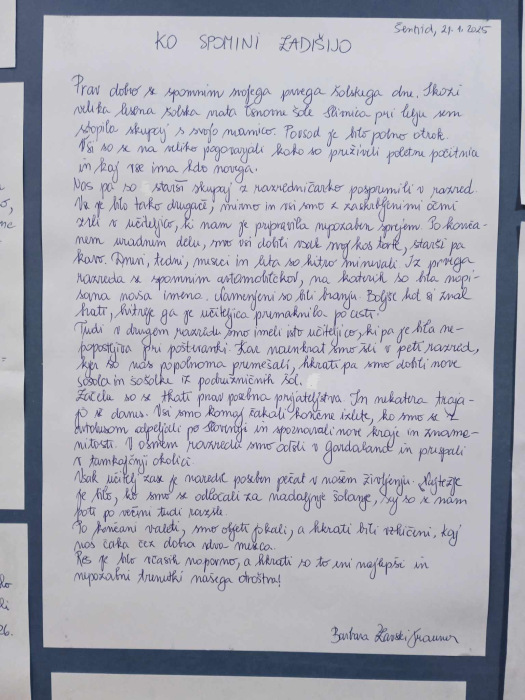 Šentvid, 21.1.2025
KO SPOMINI ZADIŠIJO
Prav dobro se spomnim svojega prvega šolskega dne. Skozi
velika lesena šolska vrata Osnovne šole Slivnica pri Celju sem
stopila skupaj s svojo mamico. Povsod je bilo polno otrok.
Vsi so se na veliko pogovarjali kako so preživeli poletne počitnice
in kaj vse ima kdo novega.
Nas pa so starši skupaj z razredničarko pospremili v razred.
Vse je bilo tako drugače, mirno in vsi smo z zaskrbljenimi očmi
zrli v učiteljico, ki nam je pripravila nepozaben sprejem. Po konča-
nem uradnem delu, smo vsi dobili vsak svoj kos torte, starši pa
kavo. Dnevi, tedni, meseci in leta so hitro minevali. Iz prvega
razreda se spomnim avtomobilčkov, na katerih so bila napi-
sana naša imena. Namenjeni so bili branju. Boljše kot si znal
brati, hitreje ga je učiteljica premaknila po cesti.
Tudi v drugem razredu smo imeli isto učiteljico, ki pa je bila ne-
popustljiva pri poštevanki. Kar naenkrat smo šli v peti razred,
kjer so nas popolnoma premešali, hkrati pa smo dobili nove
sošolce in sošolke iz podružničnih šol.
Začela so se tkati prav posebna prijateljstva. In nekatera traja-
jo še danes. Vsi smo komaj čakali končne izlete, ko smo se z
avtobusom odpeljali po Sloveniji in spoznavali nove kraje in zname-
nitosti. V osmem razredu smo odšli v Gardaland in prespali
v tamkajšnji okolici.
Vsak učitelj zase je naredil poseben pečat v našem življenju. Najtežje
je bilo, ko smo se odločali za nadaljnje šolanje, saj so se nam
poti po večini tudi razšle.
Po končani valeti, smo objeti jokali, a hkrati bili vzhičeni, kaj
nas čaka čez dobra dva meseca.
Res je bilo včasih naporno, a hkrati so to eni najlepši in
nepozabni trenutki našega otroštva!
Barbara